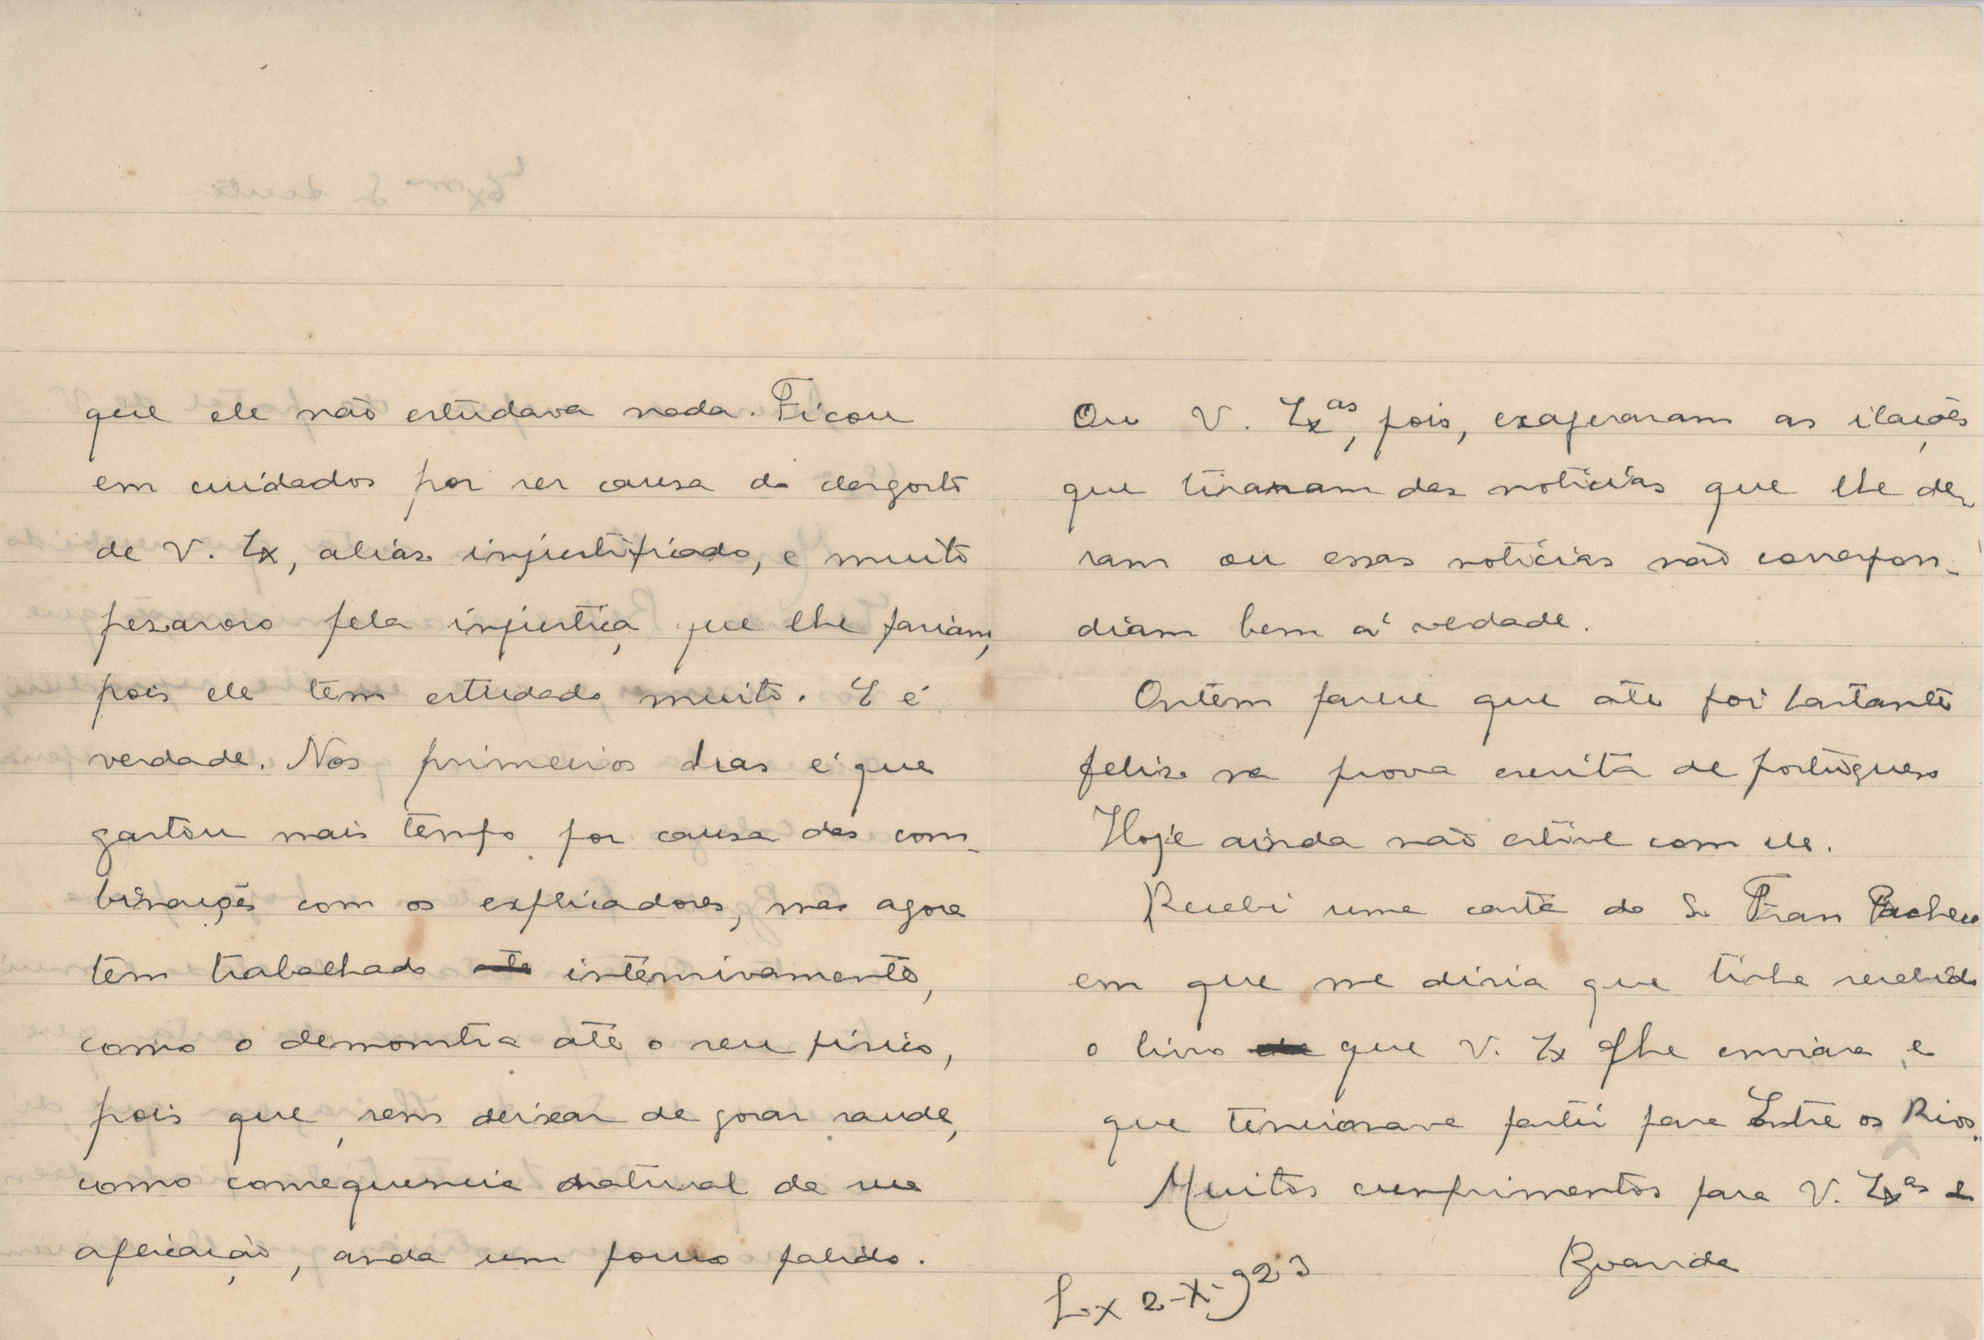 que ele não estudava nada. Ficou
em cuidados por ser causa do desgosto
de V. Ex, aliás injustificado, e muito
pezaroso pela injustiça que lhe faziam,
pois ele tem estudado muito. E é
verdade. Nos primeiros dias é que
gastou mais tempo por causa das com-
binações com os explicadores, mas agora
tem trabalhado intensivamente,
como o demonstra até o seu fisico,
pois que, sem deixar de gosar saude,
como consequencia natural da sua
aplicação, anda um pouco palido.
Ou V. Ex.as, pois, exageraram as ilações
que tiraram das noticias que lhe de-
ram ou essas noticias não correspon-
diam bem á verdade.
Ontem parece que até foi bastante
feliz na prova escrita de portugues
Hoje ainda não estive com ele.
Recebi uma carta do Sr Fran Pacheco
em que me dizia que tinha recebido
o livro que V. Ex lhe enviara e
que tencionava partir para Entre os Rios.
Muitos cumprimentos para V. Exas de
Lx 2-X-923